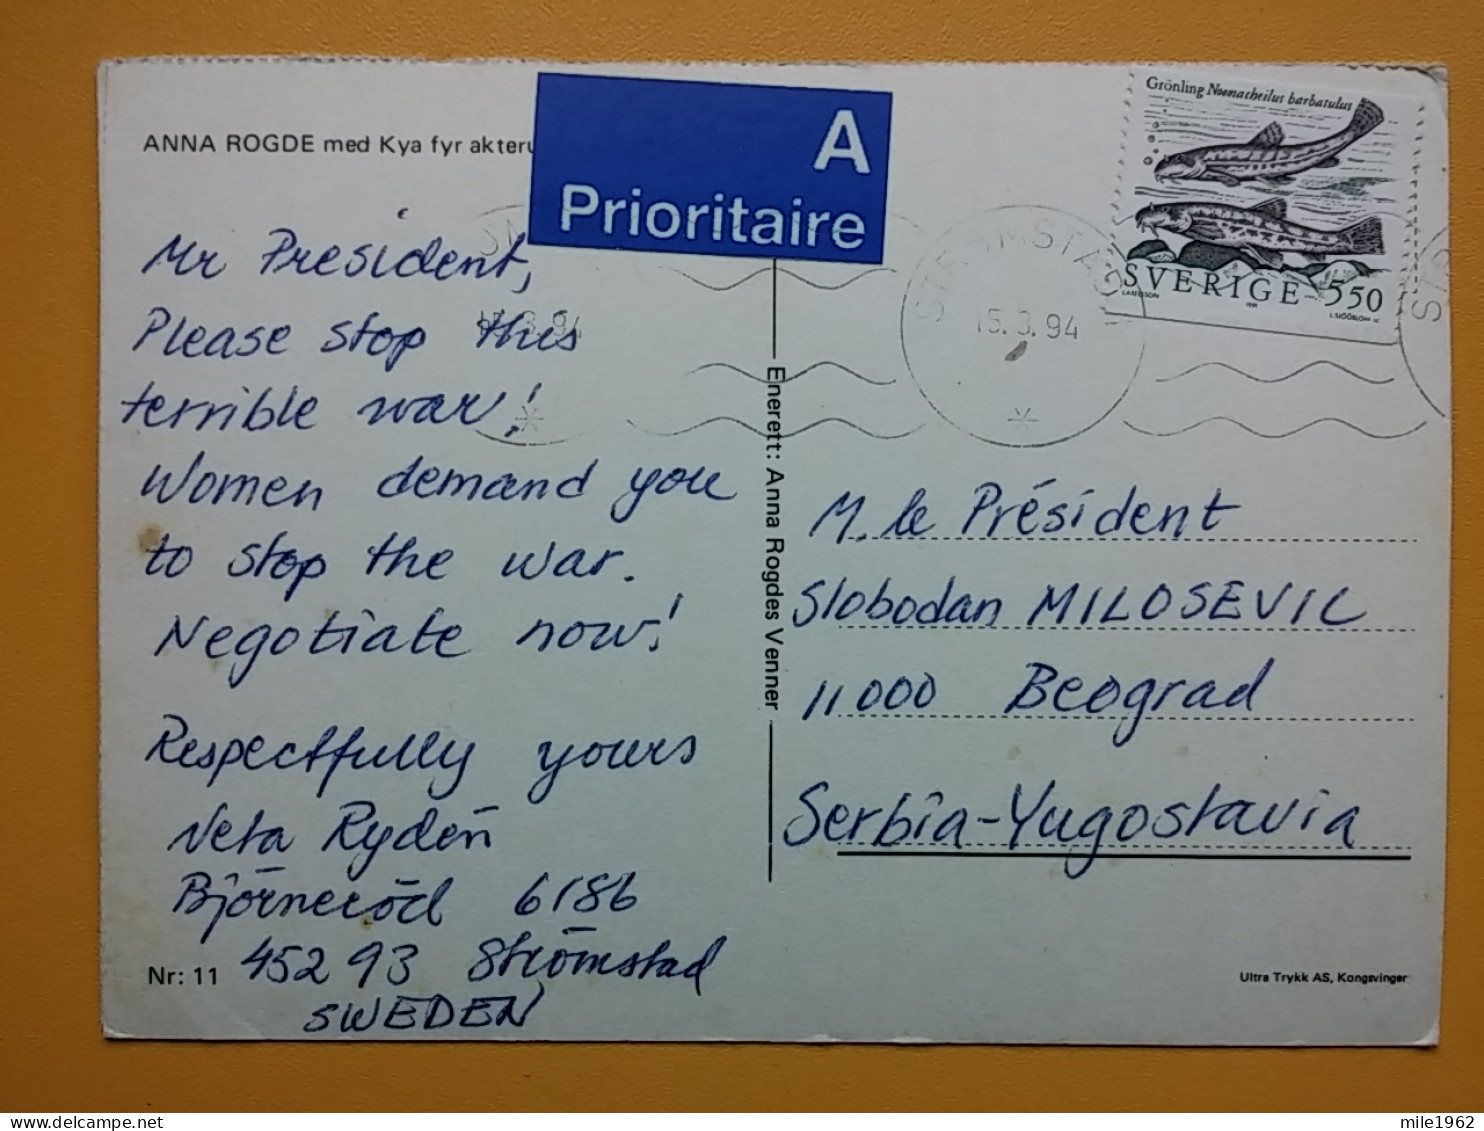 ANNA ROGDE med Kya fyr akteru
A
Prioritaire
Grönling Noemacheilus barbatulus
SVERIGE 550
L.AXELSSON 1991 L.SJÖÖBLOM SC
STRÖMSTAD
15.3.94
Mr President,
Please stop this
terrible war!
Women demand you
to stop the war.
Negotiate now!
Respectfully yours
Neta Rydén
Björneröd 6186
452 93 Strömstad
SWEDEN
Nr: 11
Enerett: Anna Rogdes Venner
M. le Président
Slobodan MILOSEVIC
11000 Beograd
Serbia-Yugoslavia
Ultra Trykk AS, Kongsvinger
mile1962